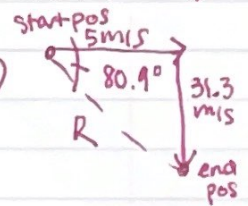 start pos
5m/s
80.9°
31.3
m/s
R
end
pos